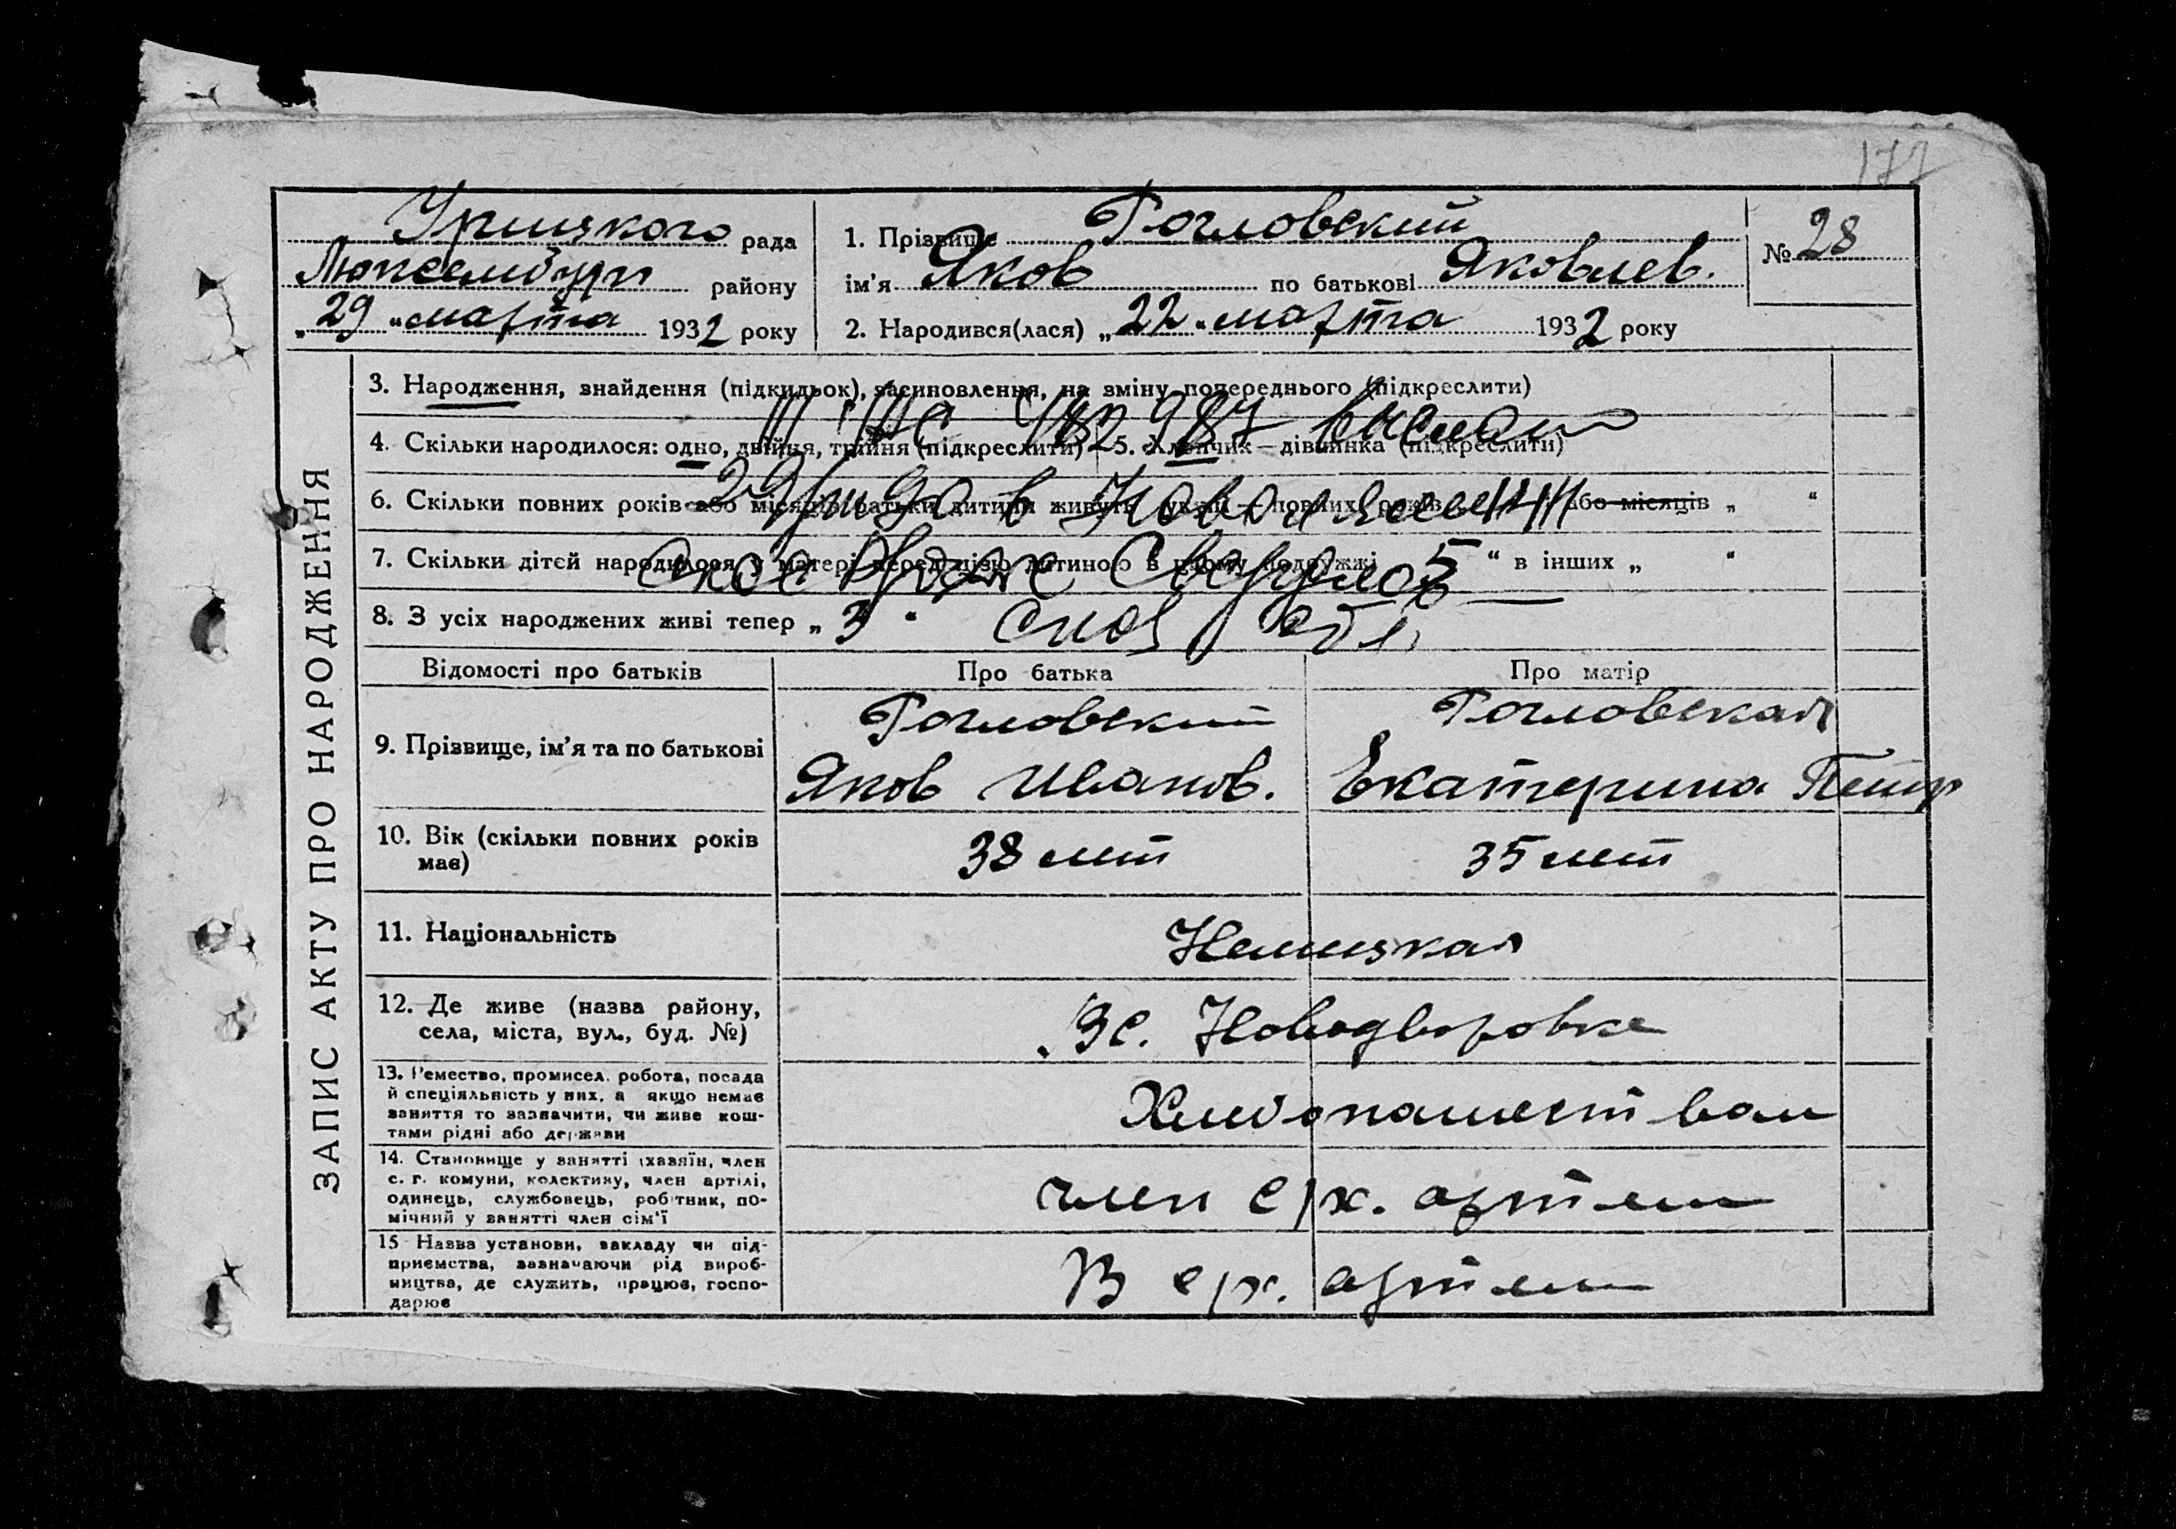 177
Урицкого рада
Люксембург району
„29“ марта 1932 року
1. Прізвище Гогловский
ім'я Яков по батькові Яковлев.
2. Народився(лася) „22“ марта 1932 року
№ 28
ЗАПИС АКТУ ПРО НАРОДЖЕННЯ
3. Народження, знайдення (підкидьок), засиновлення, на зміну попереднього (підкреслити)
4. Скільки народилося: одно, двійня, трійня (підкреслити) 5. Хлопчик — дівчинка (підкреслити)
6. Скільки повних років або місяців батьки дитини живуть повних років або місяців „ “
7. Скільки дітей народилося у матері перед цією дитиною в цьому подружжі 5 “ в інших „ “
8. З усіх народжених живі тепер „ 3 “
Відомості про батьків Про батька Про матір
9. Прізвище, ім'я та по батькові
Гогловский
Яков Иванов.
Гогловская
Екатерина Петр
10. Вік (скільки повних років
має)
38 лет
35 лет
11. Національність
Немецкая
12. Де живе (назва району,
села, міста, вул., буд. №)
Новодворовке
13. Ремество, промисел, робота, посада
й спеціяльність у них, а якщо немає
заняття то зазначити, чи живе кош-
тами рідні або держави
Хлебопашеством
14. Становище у занятті (хазяїн, член
с. г. комуни, колективу, член артілі,
одинець, службовець, робітник, по-
мічний у занятті член сім'ї
член с/х. артели
15 Назва установи, закладу чи під-
приємства, зазначаючи рід вироб-
ництва, де служить, працює, госпо-
дарює
В с/х. артели